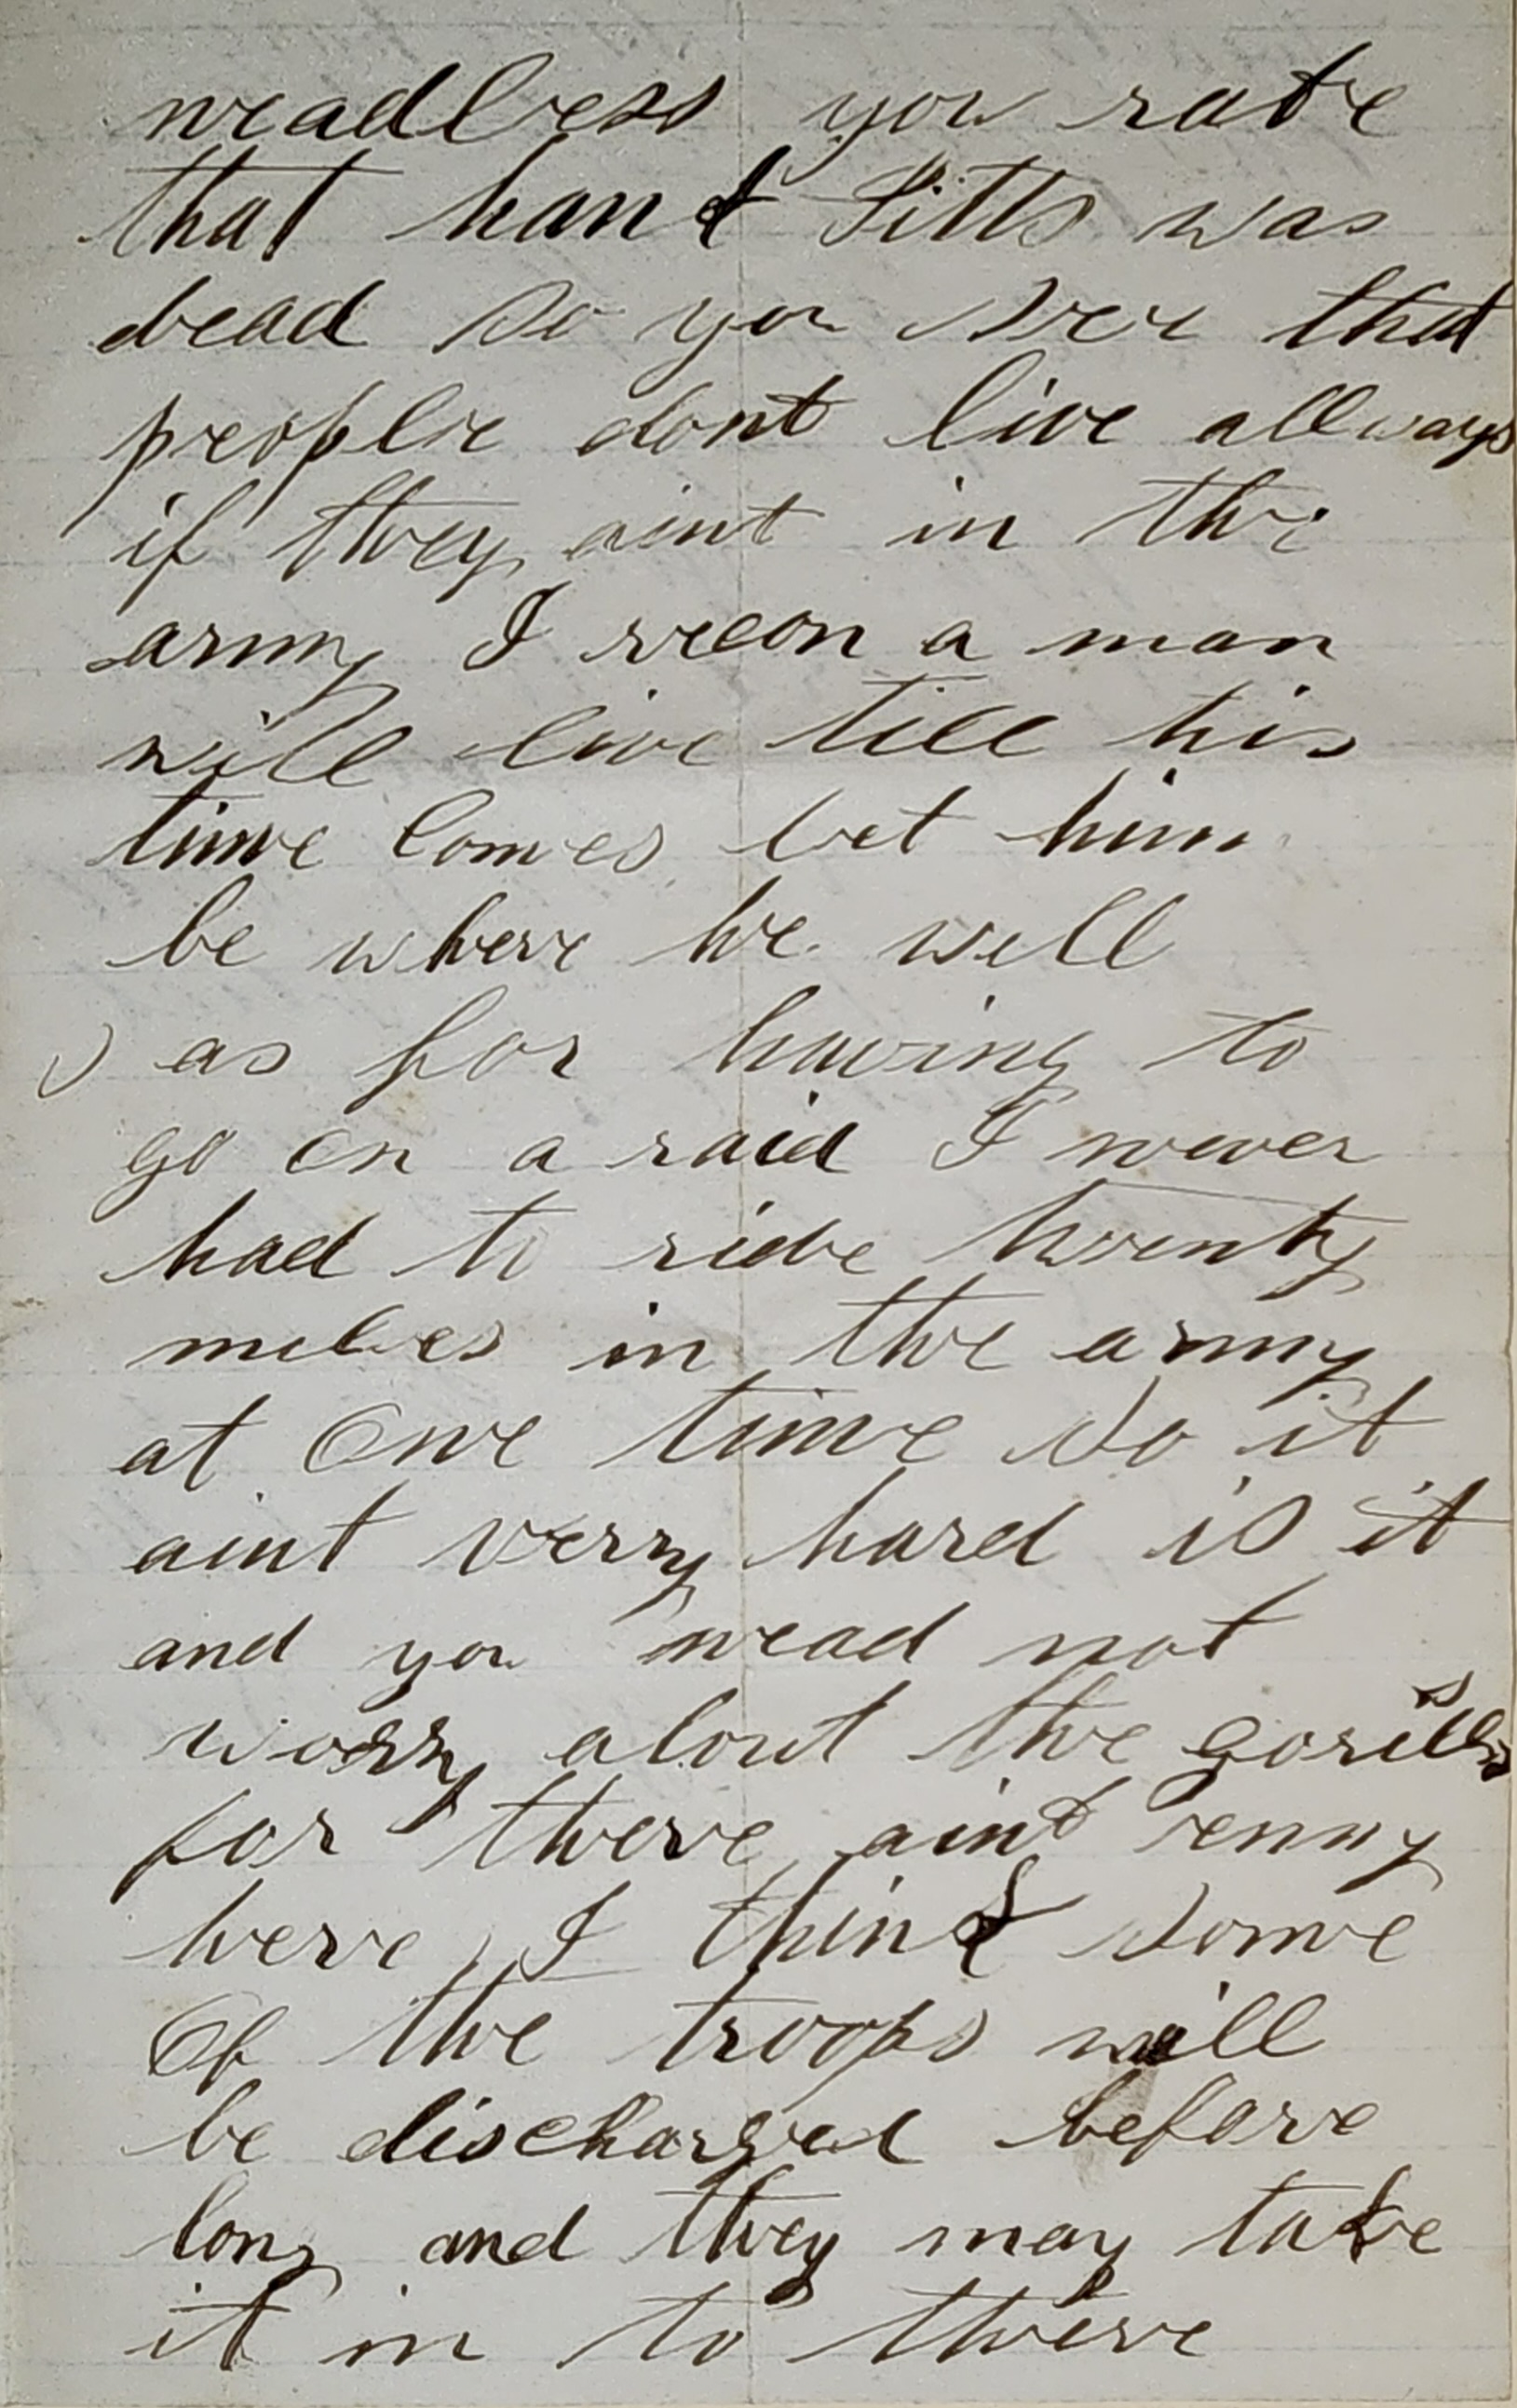 neadless you
that hank Pitts was
dead So you See that
people dont live allways
if they aint in the
army I recon a man
will live till his
time Comes let him
be where he will
as for having to
go on a raid I never
had to ride twenty
miles in the army
at One time So it
aint verry hard is it
and you nead not
worry about the gorillas
for there aint enny
here I think Some
Of the troops will
be discharged before
long and they may take
it in to there